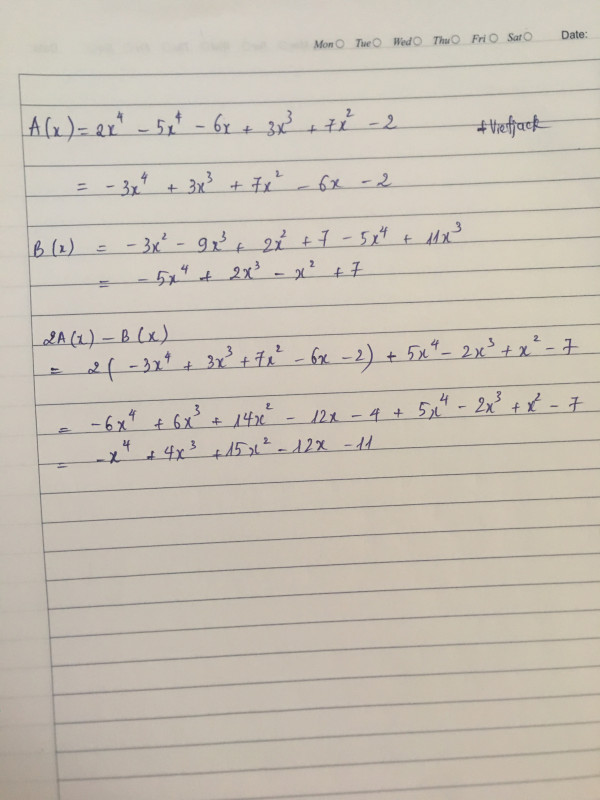 Mon Tue Wed Thu Fri Sat Date:
A(x) = 2x⁴ - 5x⁴ - 6x + 3x³ + 7x² - 2
= -3x⁴ + 3x³ + 7x² - 6x - 2
B(x) = -3x² - 9x³ + 2x² + 7 - 5x⁴ + 11x³
= -5x⁴ + 2x³ - x² + 7
2A(x) - B(x)
= 2(-3x⁴ + 3x³ + 7x² - 6x - 2) + 5x⁴ - 2x³ + x² - 7
= -6x⁴ + 6x³ + 14x² - 12x - 4 + 5x⁴ - 2x³ + x² - 7
= -x⁴ + 4x³ + 15x² - 12x - 11